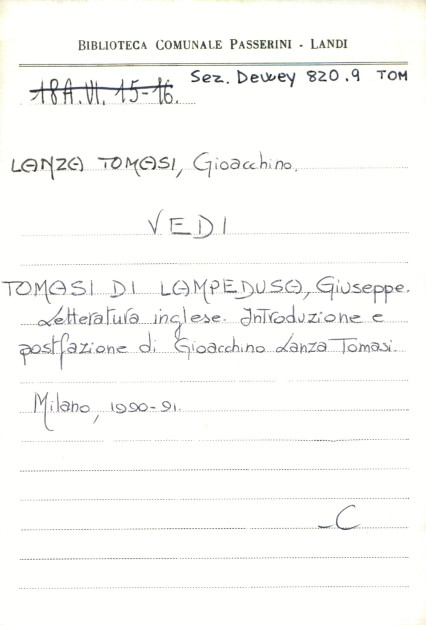 BIBLIOTECA COMUNALE PASSERINI - LANDI
Sez. Dewey 820.9 TOM
18A.VI. 15-16.
LANZA TOMASI, Gioacchino.
VEDI
TOMASI DI LAMPEDUSA, Giuseppe.
Letteratura inglese. Introduzione e
postfazione di Gioacchino Lanza Tomasi.
Milano, 1990-91.
_C